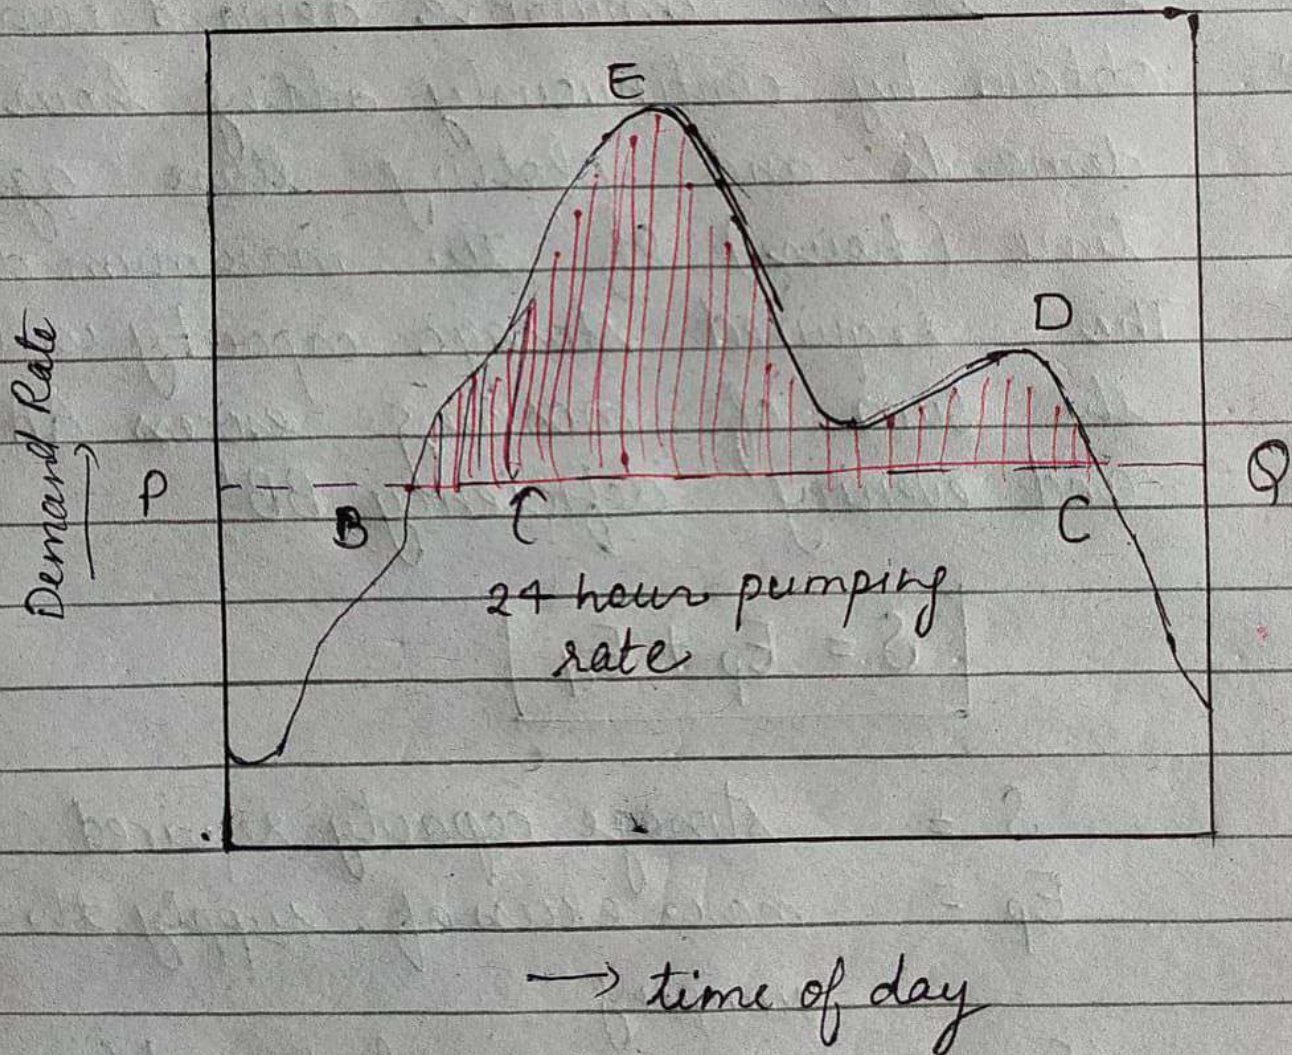 E
D
Demand Rate
P
Q
B
C
C
24 hour pumping
rate
time of day